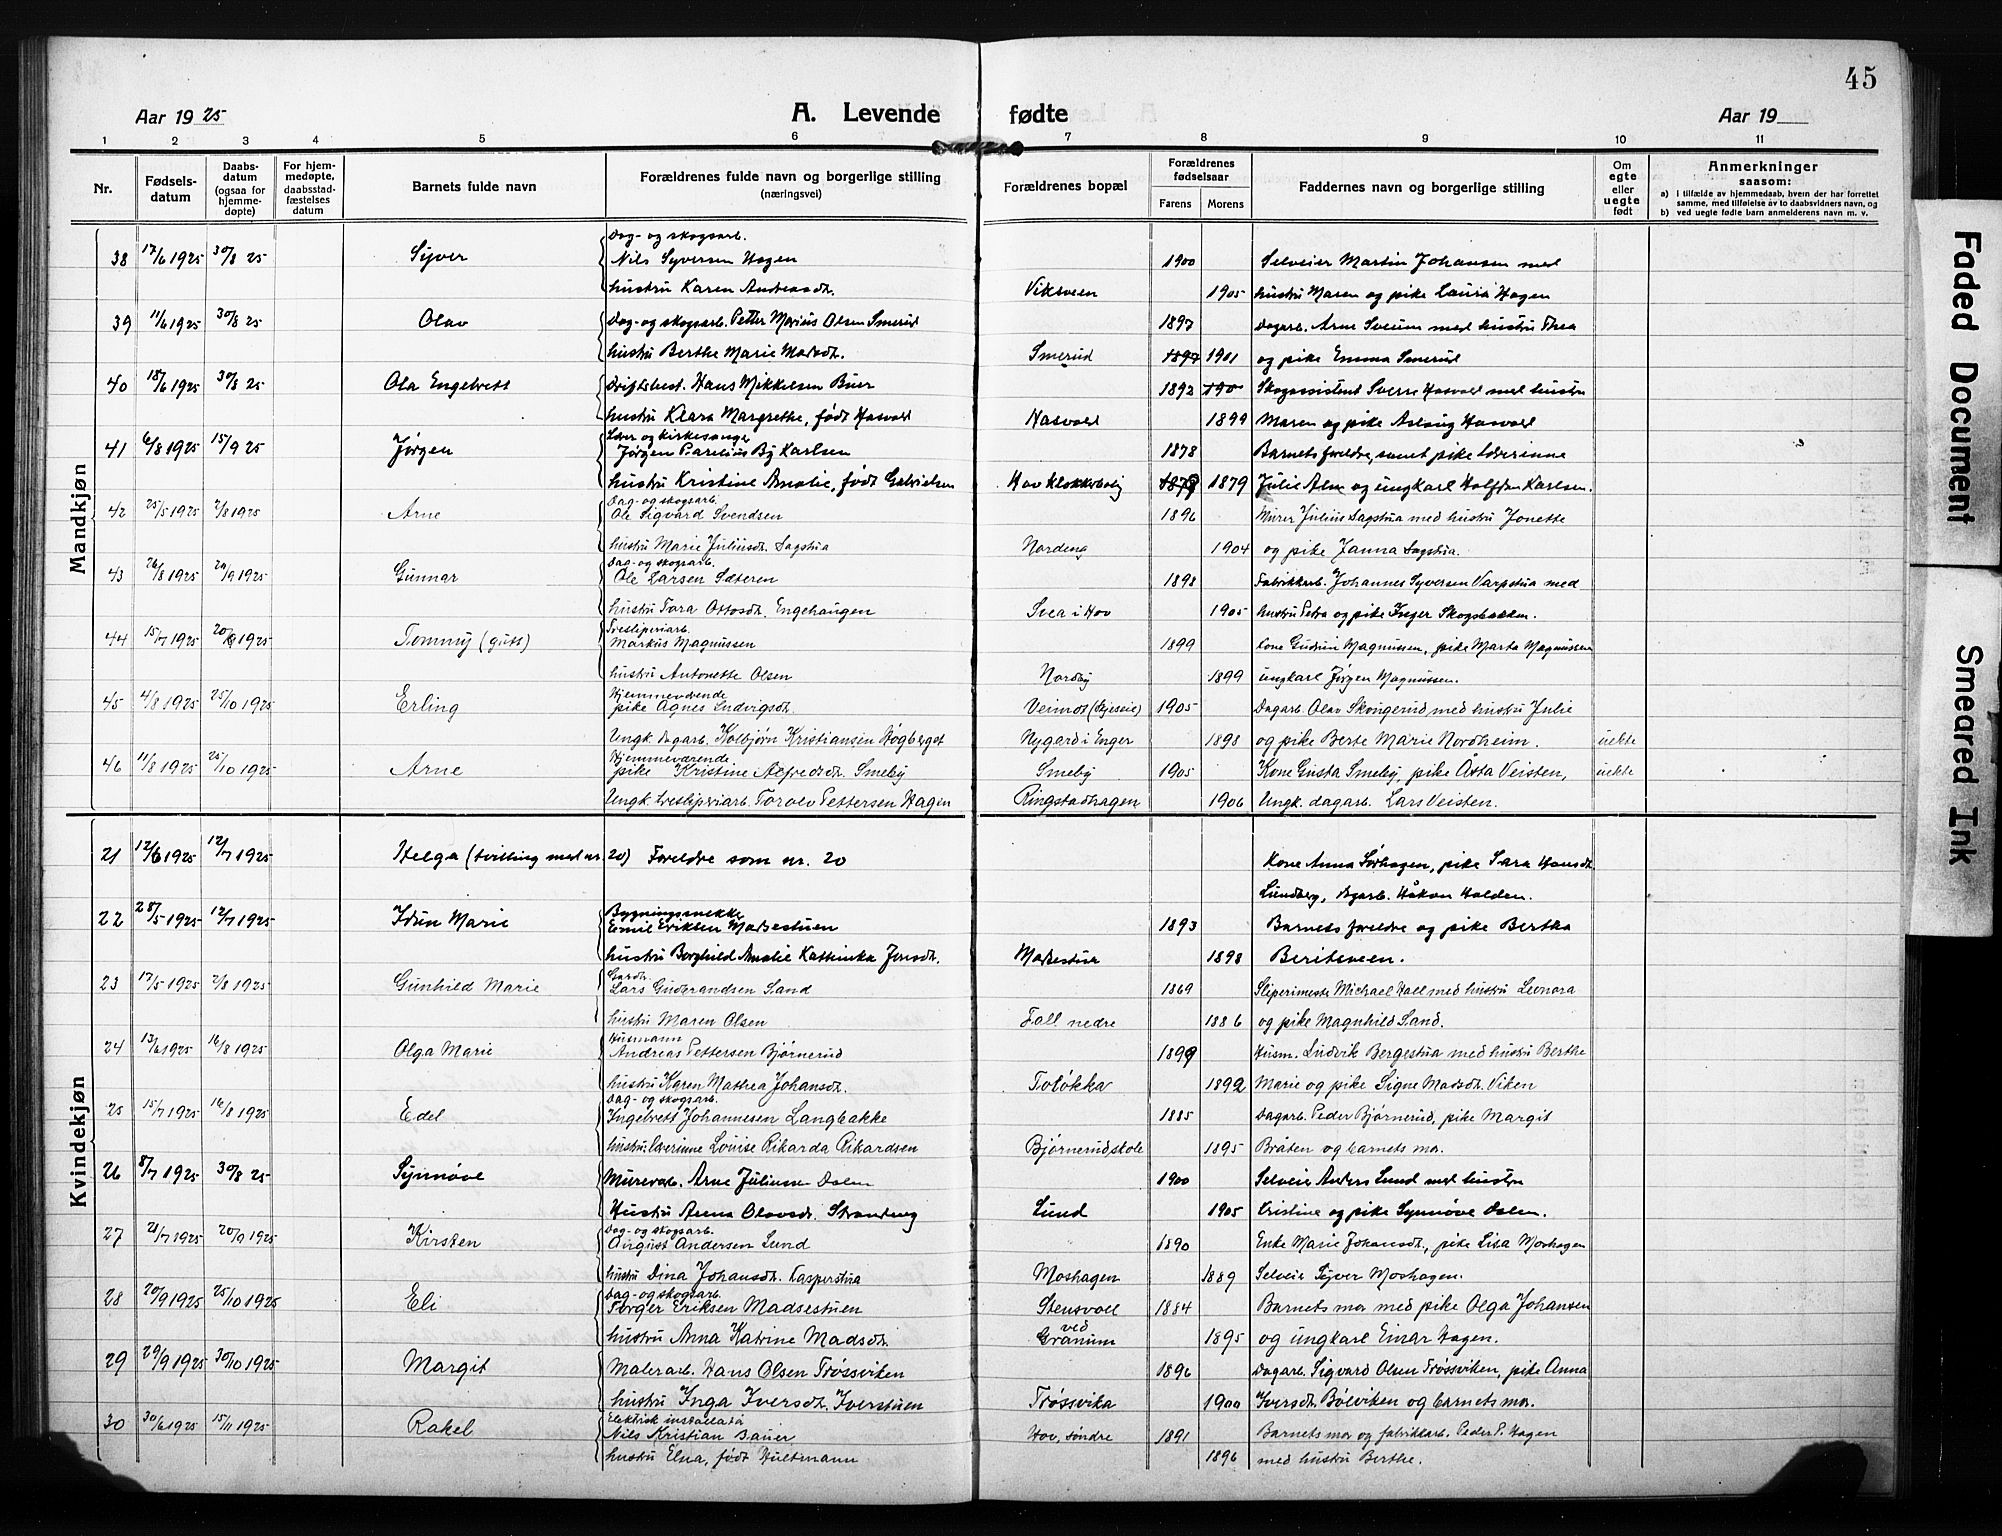 45
Aar 1925
A. Levende
fødte
Aar 19
1 2 3 4 5 6 7 8 9 10 11
Nr.
Fødsels-datum
Daabs-datum (ogsaa for hjemme-døpte)
For hjem-medøpte, daabsstad-fæstelses datum
Barnets fulde navn
Forældrenes fulde navn og borgerlige stilling (næringsvei)
Forældrenes bopæl
Forældrenes fødselsaar
Farens Morens
Faddernes navn og borgerlige stilling
Om egte eller uegte født
Anmerkninger
saasom:
a) i tilfælde av hjemmedaab, hvem der har forrettet samme, med tilføielse av to daabsvidners navn, og
b) ved uegte fødte barn anmelderens navn m. v.
Mandkjøn
Dag- og skogsarb.
38 17/6 1925 30/8 25 Syver Nils Syversen Hagen 1900 Selveier Martin Johansen med
hustru Karen Andreasdt. Viksveen 1905 hustru Maren og pike Laura Hagen
39 11/6 1925 30/8 25 Olav Dag- og skogsarb. Petter Marius Olsen Smerud 1897 Dagarb. Arne Sveum med hustru Thea
hustru Berthe Marie Madsdt. Smerud 1897 1901 og pike Emma Smerud
40 18/6 1925 30/8 25 Ola Engebrett Driftsbest. Hans Mikkelsen Buer 1892 190 Skogassistent Sverre Hasvold med hustru
hustru Klara Margrethe, født Hasvold Hasvold 1899 Maren og pike Aslaug Hasvold
Lærer og kirkesanger
41 6/8 1925 15/9 25 Jørgen Jørgen Parelius By Karlsen 1878 Barnets foreldre, samt pike lærerinne
hustru Kristine Amalie, født Gabrielsen Hov klokkerbolig 1879 1879 Julie Alm og ungkarl Halfdan Karlsen.
Dag- og skogsarb.
42 25/5 1925 2/8 1925 Arne Ole Sigvard Svendsen 1896 Murer Julius Sagstua med hustru Jonette
hustru Marie Juliusdt. Sagstua Nordeng 1904 og pike Janna Sagstua.
Dag- og skogsarb.
43 26/8 1925 20/9 1925 Gunnar Ole Larsen Sæteren 1898 Fabrikkarb. Johannes Syversen Varpstua med
hustru Tora Ottosdt. Engehaugen Svea i Hov 1905 hustru Petra og pike Inger Skogsbakken.
Tresliperiarb.
44 15/7 1925 20/9 1925 Tommy (gutt) Markus Magnussen 1899 Kone Gudrun Magnussen, pike Marta Magnussen
hustru Antonette Olsen Nordby 1899 ungkarl Jørgen Magnussen.
Hjemmeværende
45 4/8 1925 25/10 1925 Erling pike Agnes Ludvigsdt. 1905 Dagarb. Olav Skougerud med hustru Julie
Ungk. dagarb. Kolbjørn Kristiansen Høgberget Nygard i Enger 1898 og pike Berte Marie Nordheim. uekte
Hjemmeværende
46 11/8 1925 25/10 1925 Arne pike Kristine Alfredsdt. Smeby Smeby 1905 Kone Gusta Smeby, pike Åsta Veisten, uekte
Ungk. tresliperiarb. Torolv Pettersen Hagen Ringstadhagen 1906 Ungk. dagarb. Lars Veisten.
Kvindekjøn
21 12/6 1925 12/7 1925 Helga (tvilling med nr. 20) Foreldre som nr. 20 Kone Anna Sørhagen, pike Sara Hansdt.
Lundberg, dagarb. Håkon Halden.
22 28/5 1925 12/7 1925 Idun Marie Emil Eriksen Madsestuen 1893 Barnets foreldre og pike Bertha
hustru Borghild Amalie Kathinka Jensdt. Madsestua 1898 Beritsveen.
Gardbr.
23 17/5 1925 2/8 1925 Gunhild Marie Lars Gudbrandsen Sand 1869 Sliperimester Michael Hall med hustru Leonora
hustru Maren Olsen Fall nedre 1886 og pike Magnhild Sand.
Husmann
24 13/6 1925 16/8 1925 Olga Marie Andreas Pettersen Bjørnerud 1899 Husm. Ludvik Bergestua med hustru Berthe
hustru Karen Mathea Johansdt. Toløkka 1892 Marie og pike Signe Madsdt. Viken
Dag- og skogsarb.
25 15/7 1925 16/8 1925 Edel Ingebrett Johannesen Langbakke 1885 Dagarb. Peder Bjørnerud, pike Margit
hustru lærerinne Louise Rikarda Rikardsen Bjørnerud skole 1895 Bråten og barnets mor.
26 8/7 1925 30/8 25 Synnøve Murerarb. Arne Juliussen Dalen 1900 Selveier Anders Lund med hustru
Hustru Anna Olavsdt. Strandeng Lund 1905 Kristine og pike Synnøve Dalen.
Dag- og skogsarb.
27 21/7 1925 20/9 1925 Kirsten August Andersen Lund 1890 Enke Marie Johansdt., pike Lisa Moshagen
hustru Dina Johansdt. Kasperstua Moshagen 1889 Selveier Syver Moshagen.
Dag- og skogsarb.
28 20/9 1925 25/10 1925 Eli Torger Eriksen Madsestuen Stensvoll 1884 Barnets mor med pike Olga Johansen
hustru Anna Katrine Madsdt. ved Granum 1895 og ungkarl Einar Hagen.
29 29/9 1925 30/10 1925 Margit Malerarb. Hans Olsen Trøssviken 1896 Dagarb. Sigvard Olsen Trøssviken, pike Anna
hustru Inga Iversdt. Iverstuen Trøssvika 1900 Iversdt. Bølviken og barnets mor.
Elektrisk installatør
30 30/6 1925 15/11 1925 Rakel Nils Kristian Bauer Hov, søndre 1891 Barnets mor og fabrikkarb. Peder P. Hagen
hustru Elna, født Hultmann 1896 med hustru Berthe.
Faded Document
Smeared Ink